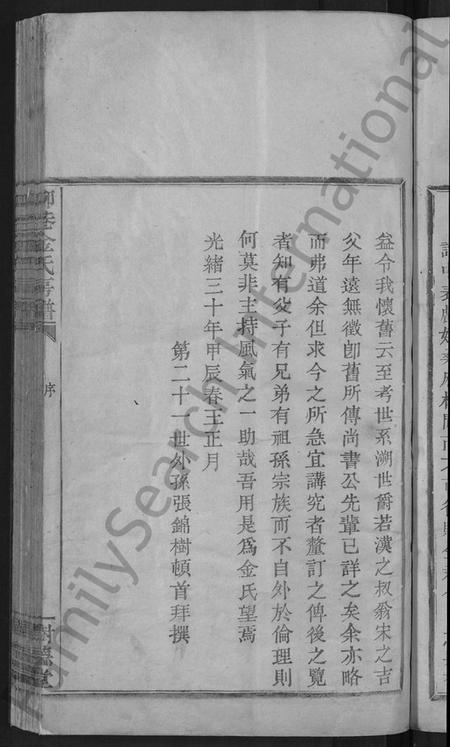 益令我懷舊云至考世系溯世爵若漢之叔翁宋之吉
父年遠無徵卽舊所傳尚書公先輩已詳之矣余亦略
而弗道余但求今之所急宜講究者釐訂之俾後之覽
者知有父子有兄弟有祖孫宗族而不自外於倫理則
何莫非主持風氣之一助哉吾用是爲金氏望焉
光緒三十年甲辰春王正月
第二十一世外孫張錦樹頓首拜撰
金氏房譜
序
堂
FamilySearch International